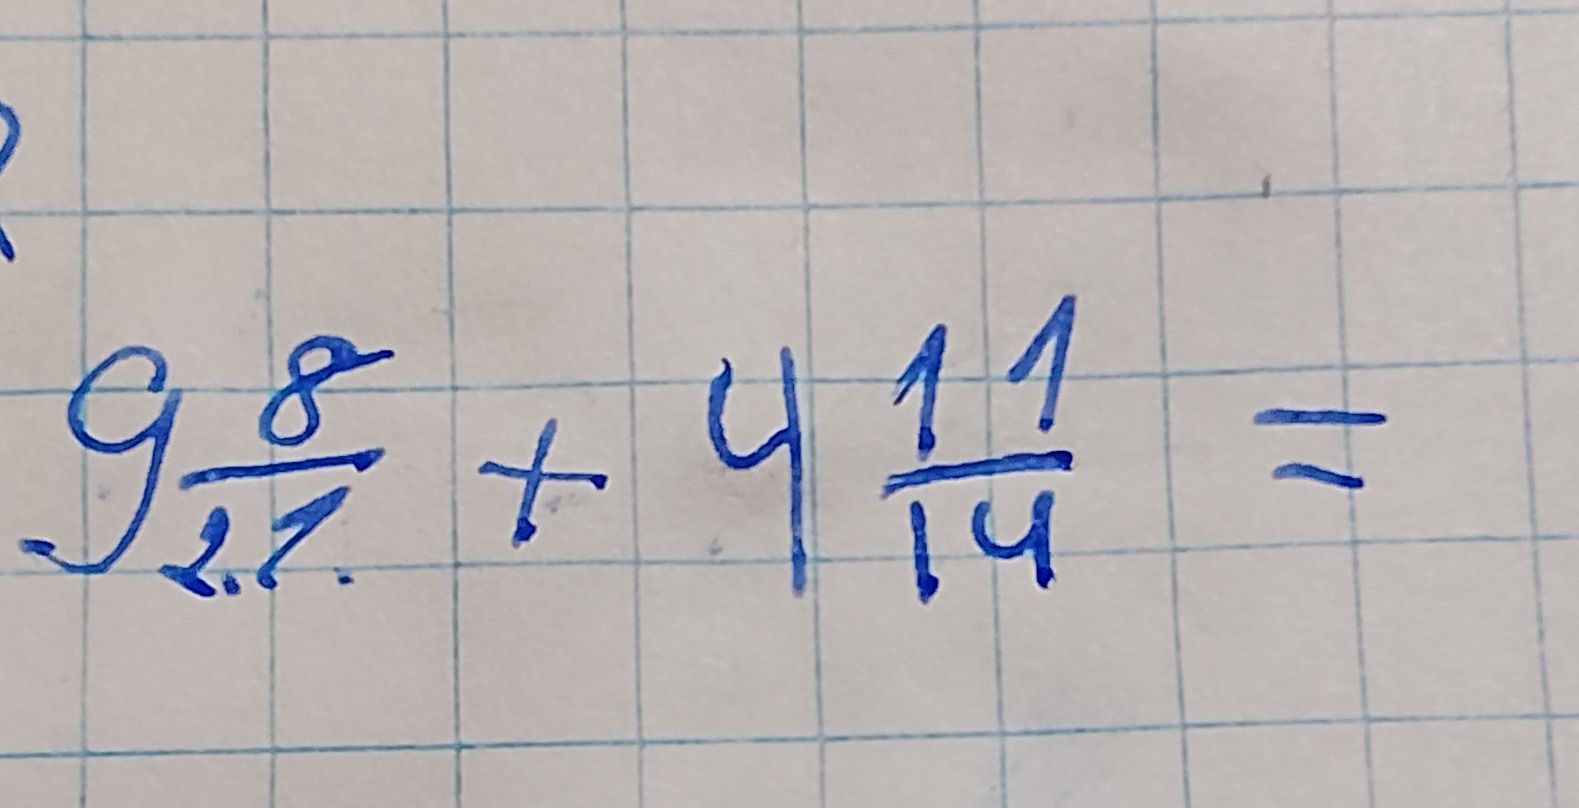 9 8/21 + 4 11/14 =